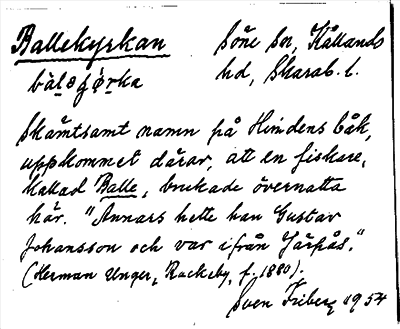 Ballekyrkan Söne sn, Kållands
hd, Skarab. l.
Skämtsamt namn på Hindens båk,
uppkommet därav, att en fiskare,
kallad Balle, brukade övernatta
här. "Annars hette han Gustav
Johansson och var ifrån Järpås."
(Herman Unger, Rackeby, f. 1880).
Sven Friberg 1954